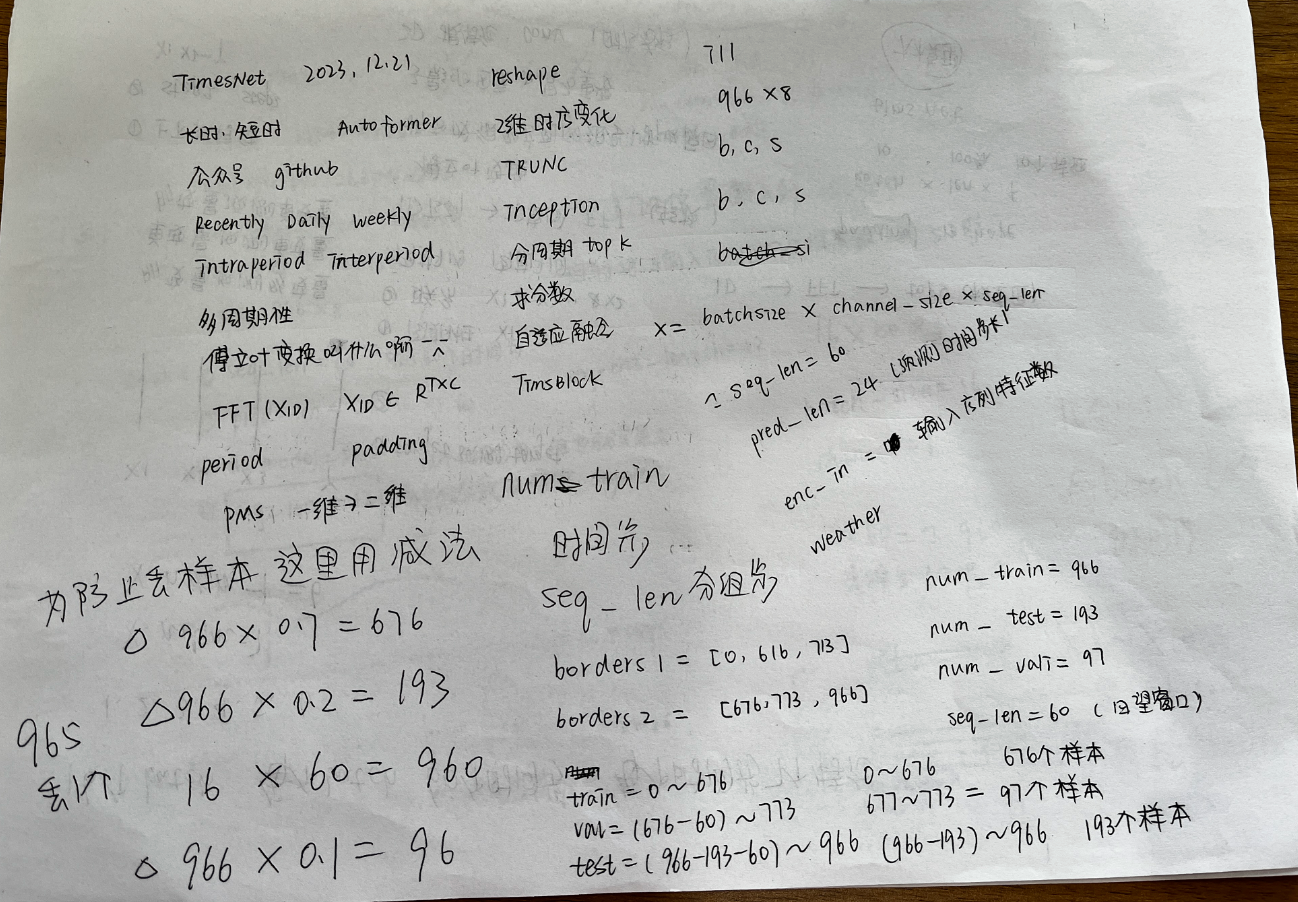 TimesNet 2023.12.21
长时、短时 Autoformer
公众号 github
Recently Daily weekly
intraperiod Interperiod
多周期性
傅立叶变换叫什么啊
FFT(X1D) X1D ∈ R^T×C
period padding
pms 一维→二维
reshape
2维时序变化
TRUNC
Inception
分周期 top k
求分数
自适应融合
TimsBlock
711
966×8
b, c, s
b, c, s
x= batchsize × channel-size × seq-len
seq-len=60
pred-len=24 (预测)时间步长
enc-in = 输入序列特征数
weather
为防止丢样本 这里用减法
△ 966×0.7=676
△966×0.2=193
965
丢1个
16×60=960
△ 966×0.1=96
num train
时间分
seq_len分组分
borders1=[0, 616, 713]
borders2=[676,773,966]
train=0~676
val=(676-60)~773
test=(966-193-60)~966
num-train=966
num-test=193
num-vali=97
seq-len=60 (回望窗口)
0~676 676个样本
677~773=97个样本
(966-193)~966 193个样本